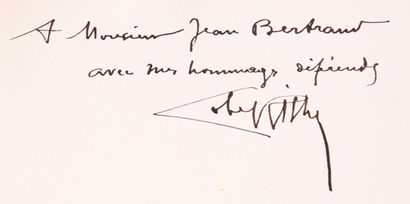 A Monsieur Jean Bertrand
avec mes hommages déférends